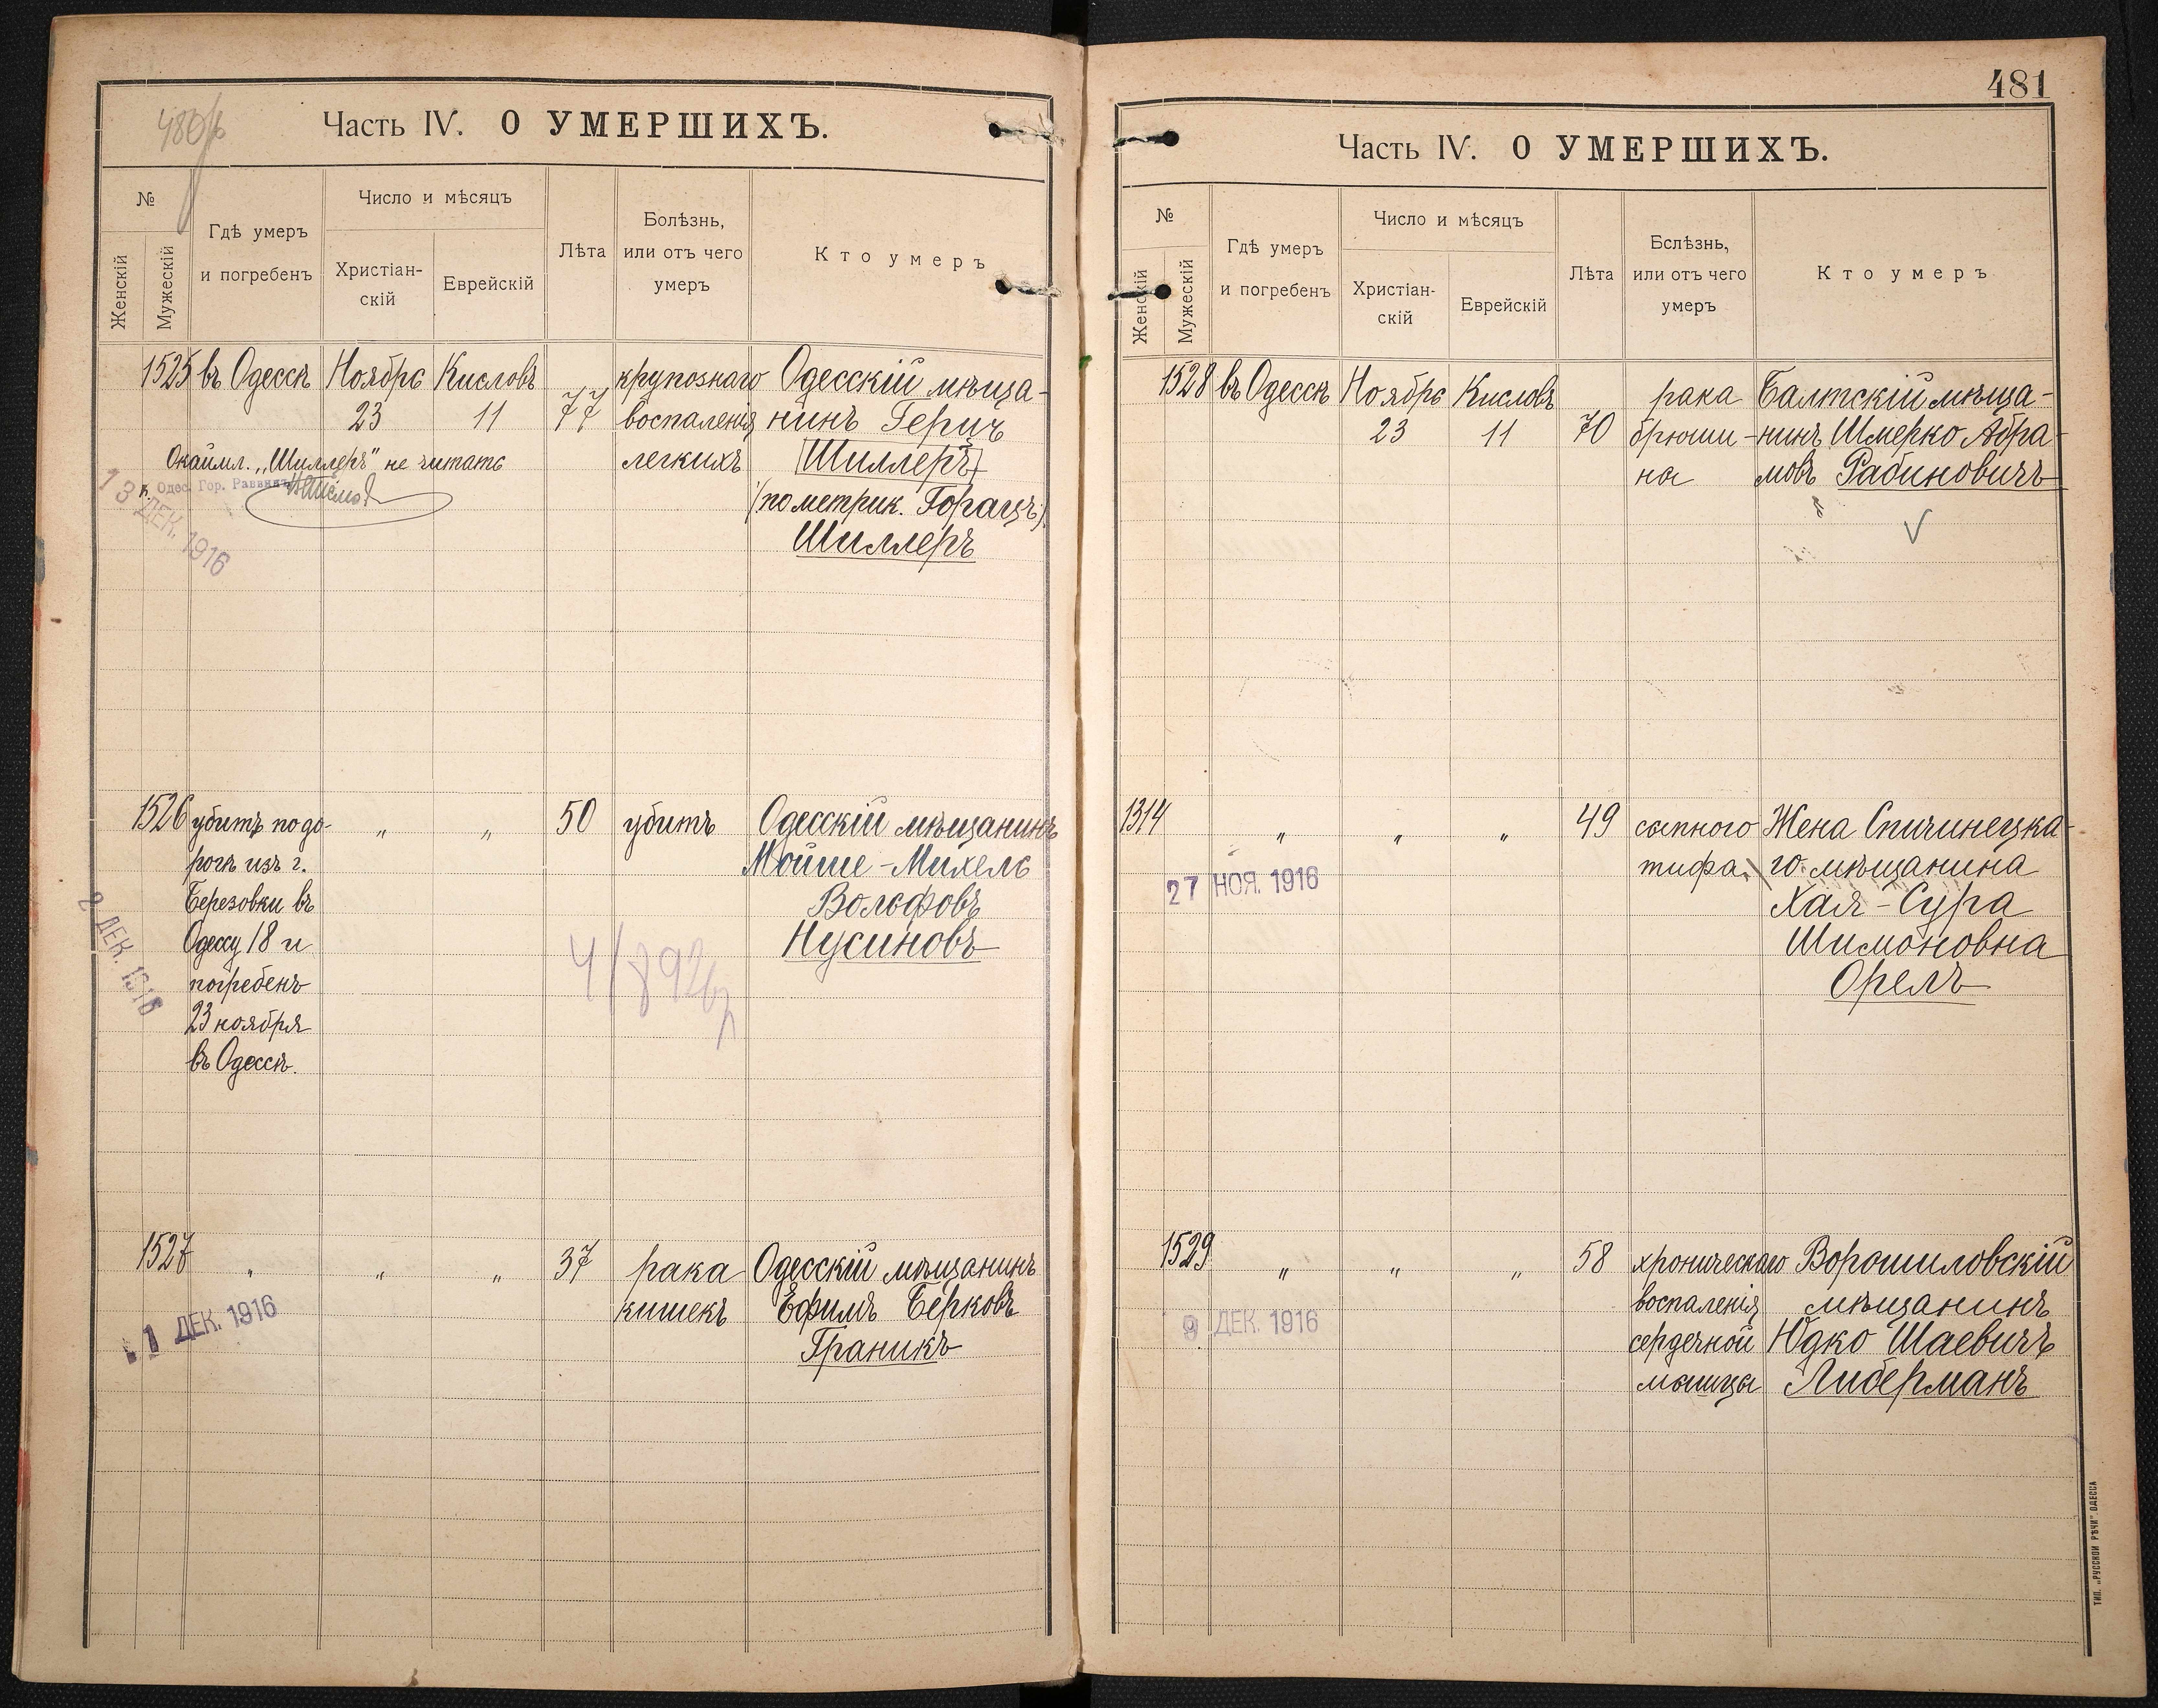 Часть IV. О УМЕРШИХЪ.
№
Женскій
Мужескій
Гдѣ умеръ
и погребенъ
Число и мѣсяцъ
Христіан-
скій
Еврейскій
Лѣта
Болѣзнь,
или отъ чего
умеръ
Кто умеръ
1525 въ Одессѣ Ноябрь Кисловъ крупознаго Одесскій мѣща-
23 11 77 воспаленія нинъ Герцъ
Окаймл. „Шиллеръ" не читать легкихъ Шиллеръ
Одес. Гор. Раввинъ
(по метрик. Горацъ)
Шиллеръ
13 ДЕК. 1916
1526 убитъ по до- „ „ 50 убитъ Одесскій мѣщанинъ
рогѣ изъ г. Мойше-Михель
Березовки въ Вольфовъ
Одессу 18 и Нусиновъ
погребенъ
23 ноября
въ Одессѣ.
2 ДЕК. 1916
1527 „ „ „ 37 рака Одесскій мѣщанинъ
кишекъ Ефимъ Берковъ
1 ДЕК. 1916
Граникъ
481
Часть IV. О УМЕРШИХЪ.
№
Женскій
Мужескій
Гдѣ умеръ
и погребенъ
Число и мѣсяцъ
Христіан-
скій
Еврейскій
Лѣта
Бслѣзнь,
или отъ чего
умеръ
Кто умеръ
1528 въ Одессѣ Ноябрь Кисловъ рака Балтскій мѣща-
23 11 70 брюши- нинъ Шмерко Абра-
на мовъ Рабиновичъ
1314 „ „ „ 49 сыпного Жена Спичинецка-
тифа. го мѣщанина
27 НОЯ. 1916
Хая-Сура
Шимоновна
Орелъ
1529 „ „ „ 58 хроническаго Ворошиловскій
воспаленія мѣщанинъ
9 ДЕК. 1916
сердечной Юдко Шаевичъ
мышцы Либерманъ
ТИП. „РУССКОЙ РѢЧИ" ОДЕССА